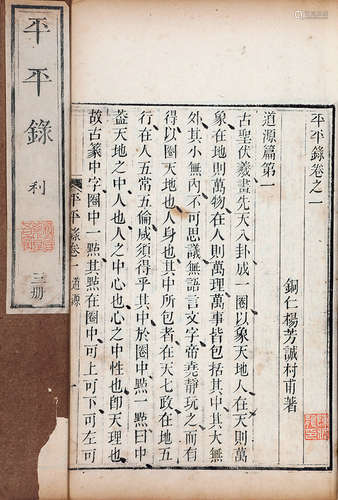 平平錄
利
三册
平平錄卷之一
銅仁楊芳誠村甫著
道源篇第一
古聖伏羲書先天八卦成一圈以象天地人在天則萬
象在地則萬物在人則萬理萬事皆包括其中其大無
外其小無內不可思議無語言文字帝堯靜玩之而有
得以圈天地也人身也其中所包者在天七政在地五
行在人五常五倫咸須得乎其中於圈中㸃一㸃曰中
葢天地之中人也人之中心也心之中性也卽天理也
故古篆中字圈中一㸃其㸃在圈中可上可下可左可
平平錄
卷一 道源